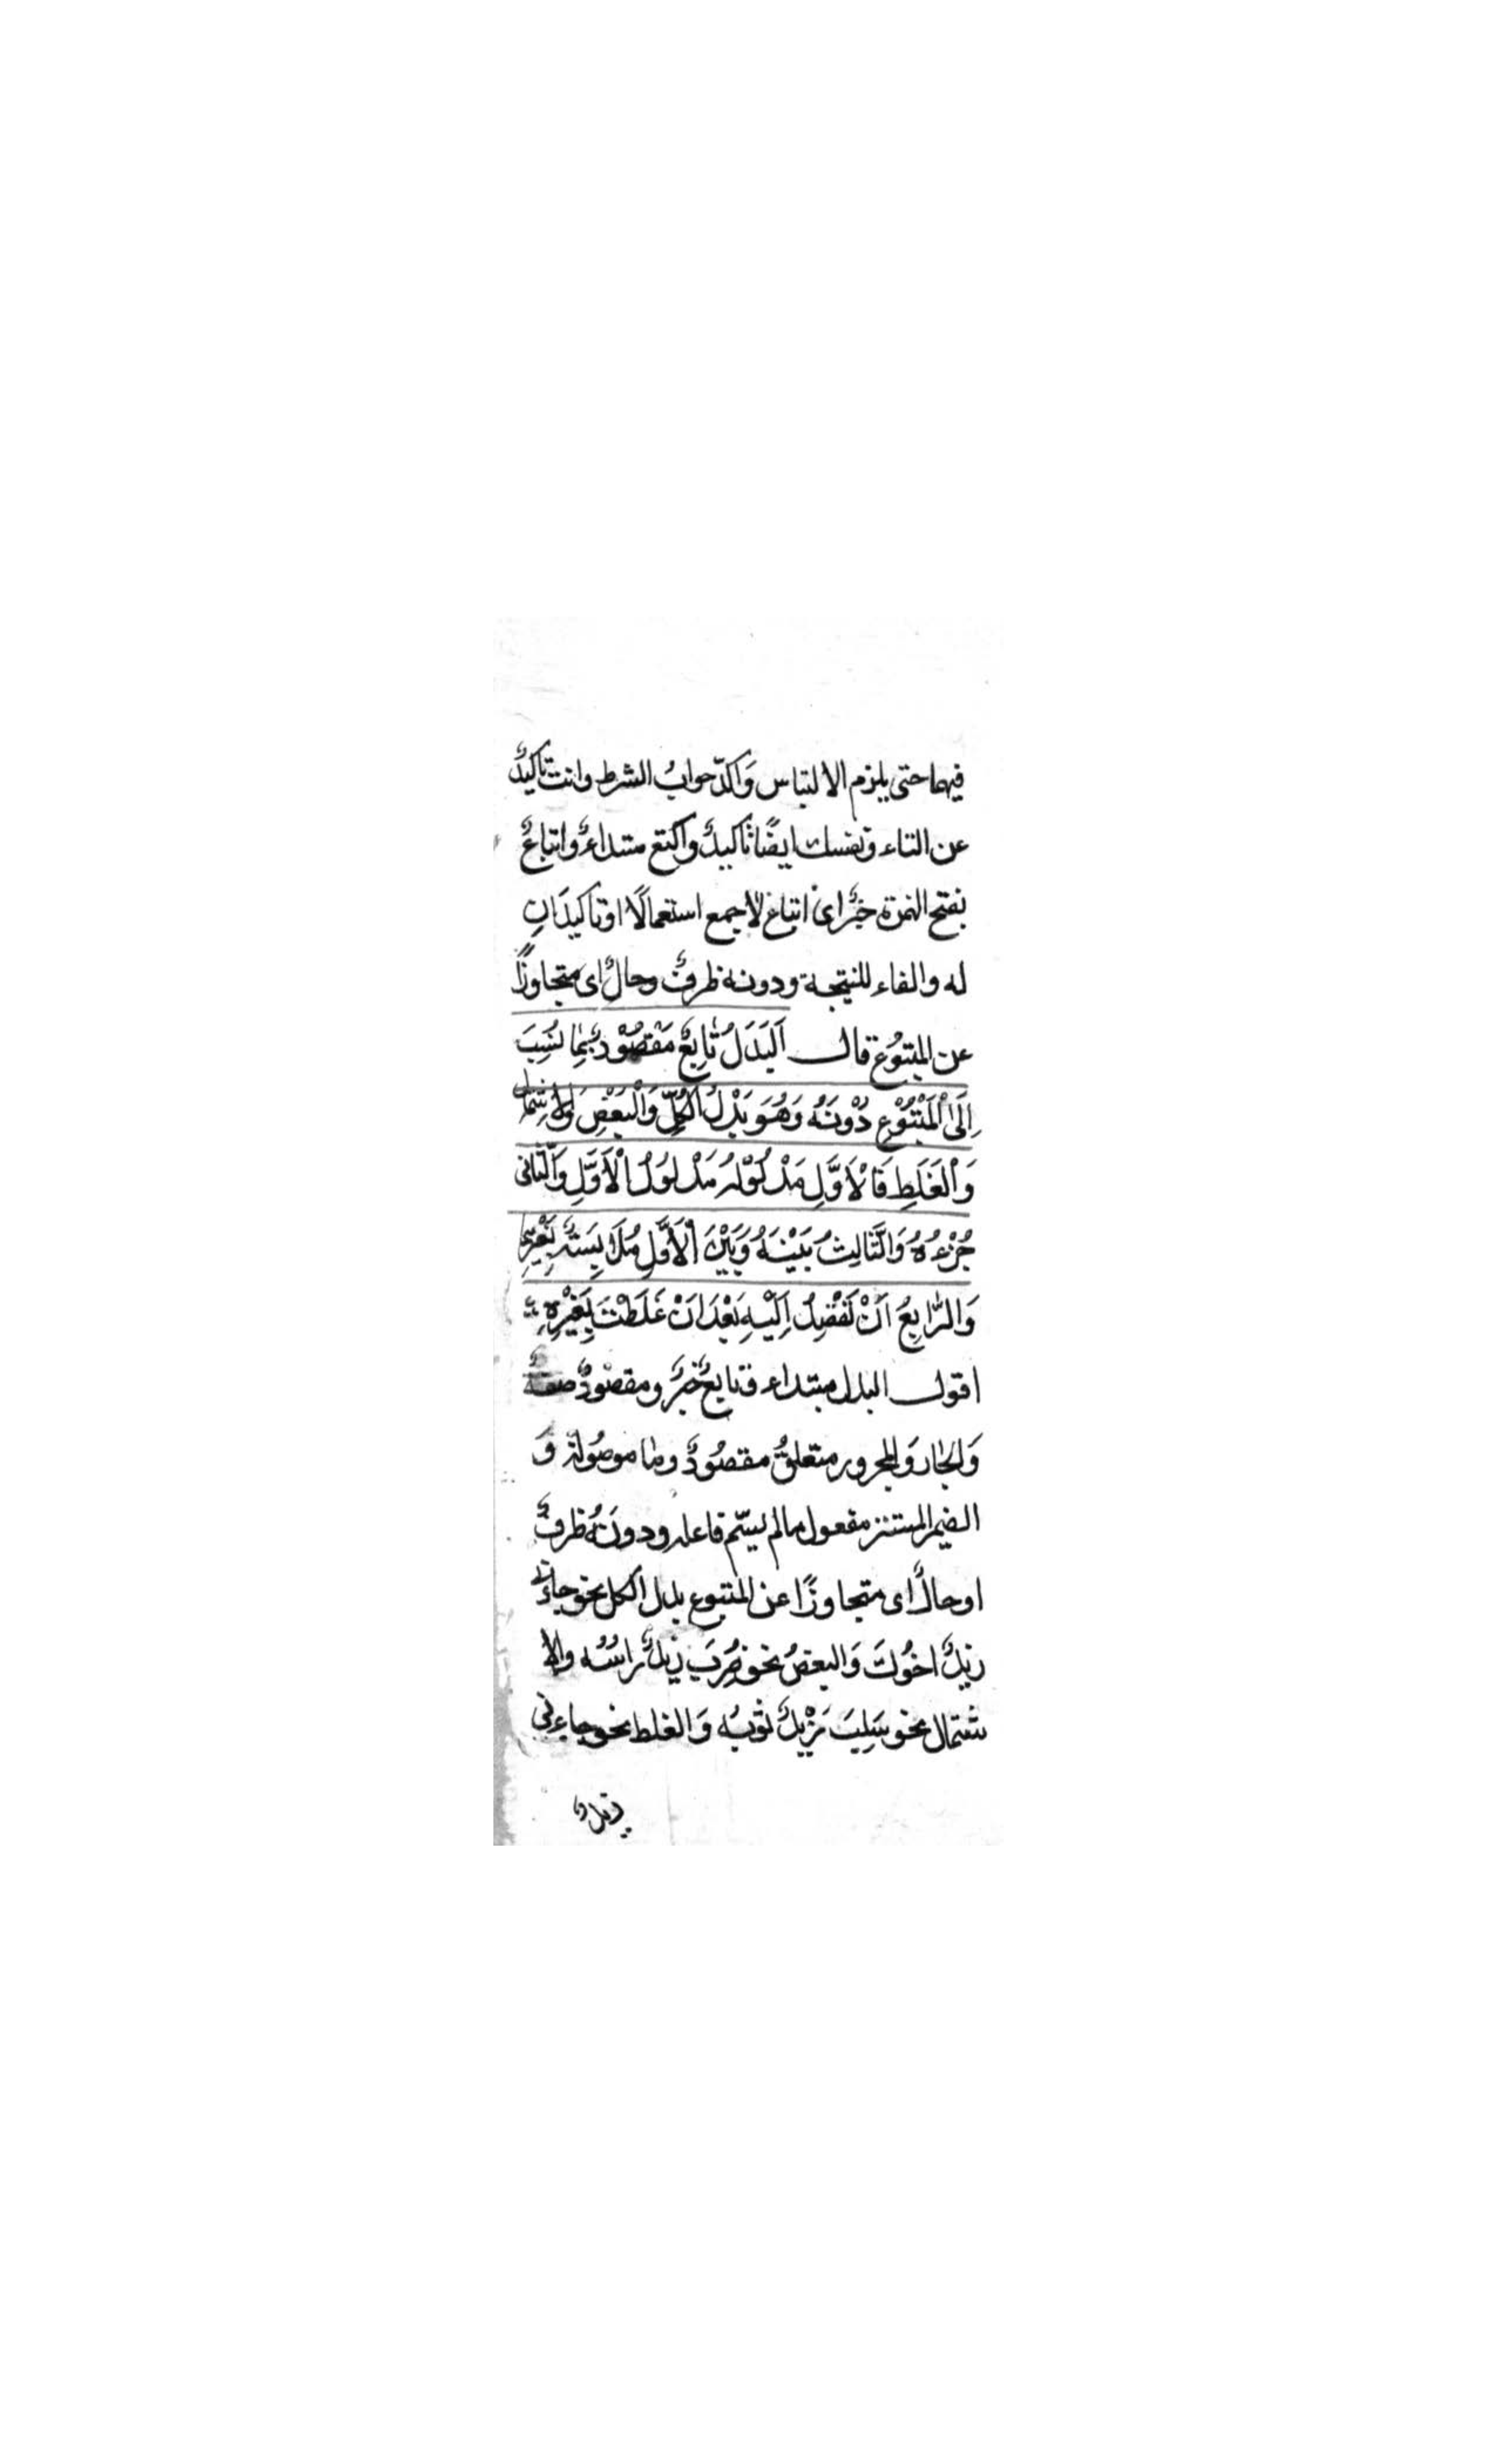 فيهما حتى يلزم الالتباس وَاكدّ جوابُ الشرط وانت تاكيدٌ
عن التاء ونفسك ايضًا تاكيدٌ واكتع مبتداءٌ واتباعٌ
بفتح الهمزة خبرٌ اىْ اتباع لاجمع استعمالًا او تاكيدَانِ
له والفاء للنتيجة ودونه ظرفٌ وحالٌ اى متجاوزًا
عن المتبوُع قال اَلبَدَلُ تَابِعٌ مَقْصُوْدٌ بِمَا نُسِبَ
اِلَى الْمَتْبُوْعِ دُوْنَهُ وَهُوَ بَدْلُ الْكُلِّ وَالْبَعْضِ وَالاشتمال
وَالْغَلَطِ فَالْاَوَّلِ مَدْلُوْلُهُ مَدْلُوْلُ الْاَوَّلِ وَالثَّانِى
جُزْءُهُ وَالثَّالِثُ بَيْنَهُ وَبَيْنَ الْاَوَّلِ مُلَابِسَتُهُ بِغَيْرِهِمَا
وَالرَّابِعُ اَنْ تَقْصِدُ اِلَيْهِ بَعْدَ اَنْ غَلَطْتَ بِغَيْرِهِ
اقول البدل مبتداء وتابعٌ خبرٌ ومقصودٌ صفةٌ
وَالجار وَالمجرور متعلقُ مقصُودٌ وما موصُولة وَ
الضمير المستتر مفعول مالم يسمّ فاعله ودونَهُ ظرفٌ
اوحالٌ اى متجاوزًا عن المتبوع بدل الكل نحو جاءَنى
زيدٌ اخُوكَ وَالبعضُ نحو ضُرِبَ زيدٌ راسُهُ والا
شتمال نحو سَلِبَ زَيْدٌ ثوبُه وَالغلط نحو جاءنى
زيدٌ